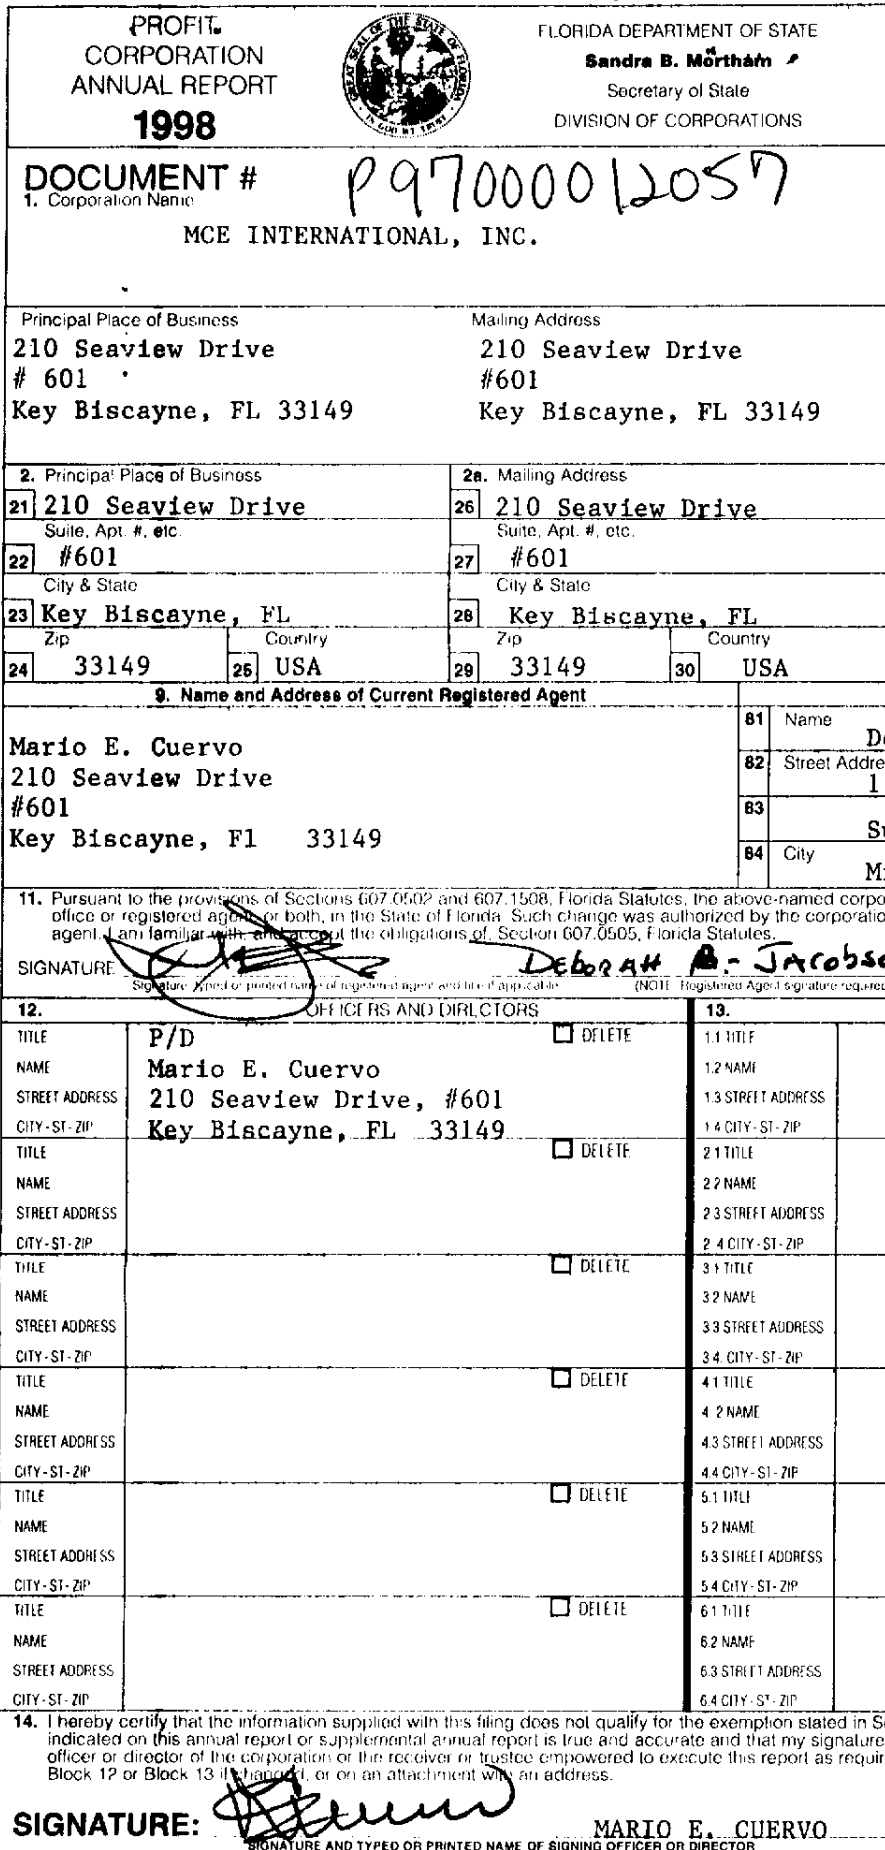 PROFIT
CORPORATION
ANNUAL REPORT
1998
GREAT SEAL OF THE STATE OF FLORIDA
IN GOD WE TRUST
FLORIDA DEPARTMENT OF STATE
Sandra B. Mortham
Secretary of State
DIVISION OF CORPORATIONS
DOCUMENT # P97000012057
1. Corporation Name
MCE INTERNATIONAL, INC.
Principal Place of Business
210 Seaview Drive
# 601
Key Biscayne, FL 33149
Mailing Address
210 Seaview Drive
#601
Key Biscayne, FL 33149
2. Principal Place of Business
21 210 Seaview Drive
Suite, Apt. #, etc.
22 #601
City & State
23 Key Biscayne, FL
Zip Country
24 33149 25 USA
2a. Mailing Address
26 210 Seaview Drive
Suite, Apt. #, etc.
27 #601
City & State
28 Key Biscayne, FL
Zip Country
29 33149 30 USA
9. Name and Address of Current Registered Agent
Mario E. Cuervo
210 Seaview Drive
#601
Key Biscayne, Fl 33149
81 Name
De
82 Street Addre
1
83
Su
84 City
Mi
11. Pursuant to the provisions of Sections 607.0502 and 607.1508, Florida Statutes, the above-named corpo
office or registered agent, or both, in the State of Florida. Such change was authorized by the corporatio
agent. I am familiar with, and accept the obligations of, Section 607.0505, Florida Statutes.
SIGNATURE DEborAH B. JAcobso
Signature, typed or printed name of registered agent and title if applicable (NOTE Registered Agent signature required
12. OFFICERS AND DIRECTORS
TITLE P/D DELETE
NAME Mario E. Cuervo
STREET ADDRESS 210 Seaview Drive, #601
CITY-ST-ZIP Key Biscayne, FL 33149
TITLE DELETE
NAME
STREET ADDRESS
CITY-ST-ZIP
TITLE DELETE
NAME
STREET ADDRESS
CITY-ST-ZIP
TITLE DELETE
NAME
STREET ADDRESS
CITY-ST-ZIP
TITLE DELETE
NAME
STREET ADDRESS
CITY-ST-ZIP
TITLE DELETE
NAME
STREET ADDRESS
CITY-ST-ZIP
13.
1.1 TITLE
1.2 NAME
1.3 STREET ADDRESS
1.4 CITY-ST-ZIP
2.1 TITLE
2.2 NAME
2.3 STREET ADDRESS
2.4 CITY-ST-ZIP
3.1 TITLE
3.2 NAME
3.3 STREET ADDRESS
3.4. CITY-ST-ZIP
4.1 TITLE
4.2 NAME
4.3 STREET ADDRESS
4.4 CITY-ST-ZIP
5.1 TITLE
5.2 NAME
5.3 STREET ADDRESS
5.4 CITY-ST-ZIP
6.1 TITLE
6.2 NAME
6.3 STREET ADDRESS
6.4 CITY-ST-ZIP
14. I hereby certify that the information supplied with this filing does not qualify for the exemption stated in S
indicated on this annual report or supplemental annual report is true and accurate and that my signature
officer or director of the corporation or the receiver or trustee empowered to execute this report as requir
Block 12 or Block 13 if changed, or on an attachment with an address.
SIGNATURE: MARIO E. CUERVO
SIGNATURE AND TYPED OR PRINTED NAME OF SIGNING OFFICER OR DIRECTOR